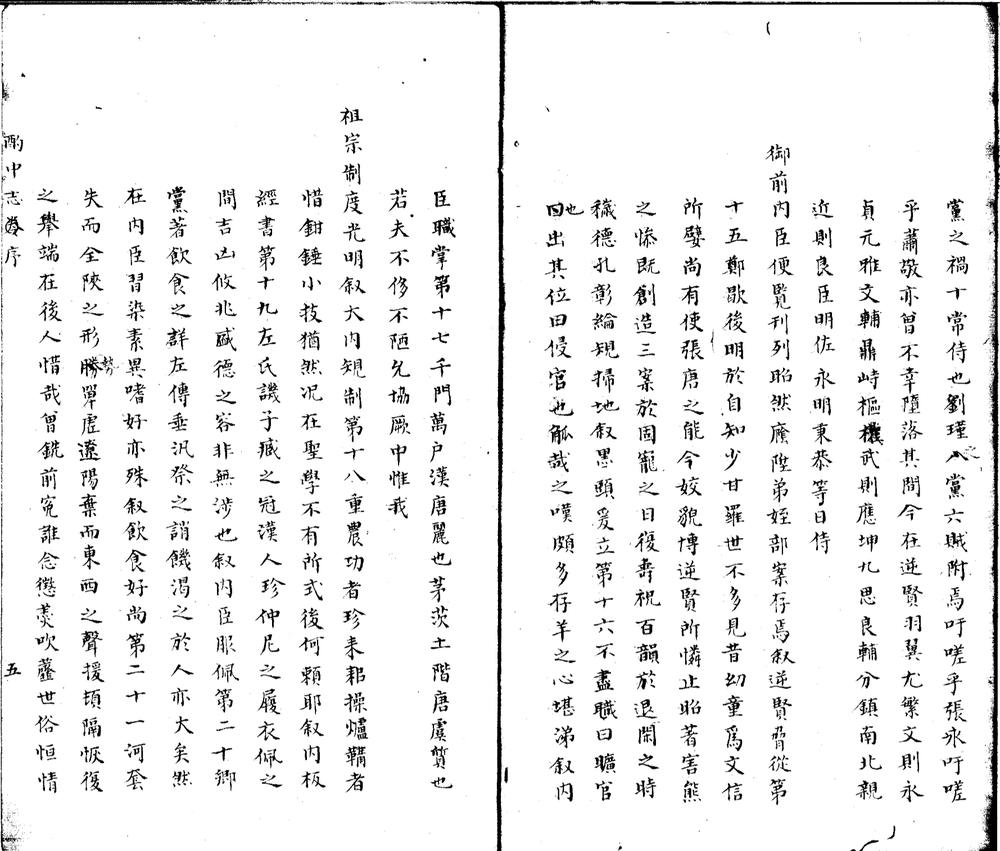 黨之禍十常侍也劉瑾八黨六賊附焉吁嗟乎張永吁嗟
乎蕭敬亦曾不幸墮落其間今在逆賢羽翼尤繁文則永
貞元雅文輔鼎峙樞機武則應坤九思良輔分鎮南北親
近則良臣明佐永明東恭等日侍
御前內臣便覽刊列昭然廕陞弟姪部案存焉叙逆賢羽從第
十五鄭歇後明於自知少甘羅世不多見昔幼童爲文信
所嬖尚有使張唐之能今姣貌愽逆賢所憐止昭著害熊
之慘既創造三案於固寵之日復壽祝百韻於退閑之時
穢德孔彰綸規掃地叙愚頭爰立第十六不盡職曰曠官
也出其位曰侵官也觚哉之嘆頗多存羊之心堪涕叙內
臣職掌第十七千門萬户漢唐麗也茅茨土階唐虞質也
若夫不侈不陋允協厥中惟我
祖宗制度光明叙大內規制第十八重農功者珍耒耜操爐鞴者
惜鉗錘小技猶然况在聖學不有所式後何頼耶叙內板
經書第十九左氏譏子臧之冠漢人珍仲尼之履衣佩之
間吉凶攸兆盛德之容非無涉也叙內臣服佩第二十鄉
黨著飲食之群左傳垂汎祭之誚饑渴之於人亦大矣然
在內臣習染素異嗜好亦殊叙飲食好尚第二十一河套
失而全陝之形勝勢單虛遼陽棄而東西之聲援頓隔恢復
之舉端在後人惜哉曾銑前寃誰念懲羹吹虀世俗恒情
酌中志序
五